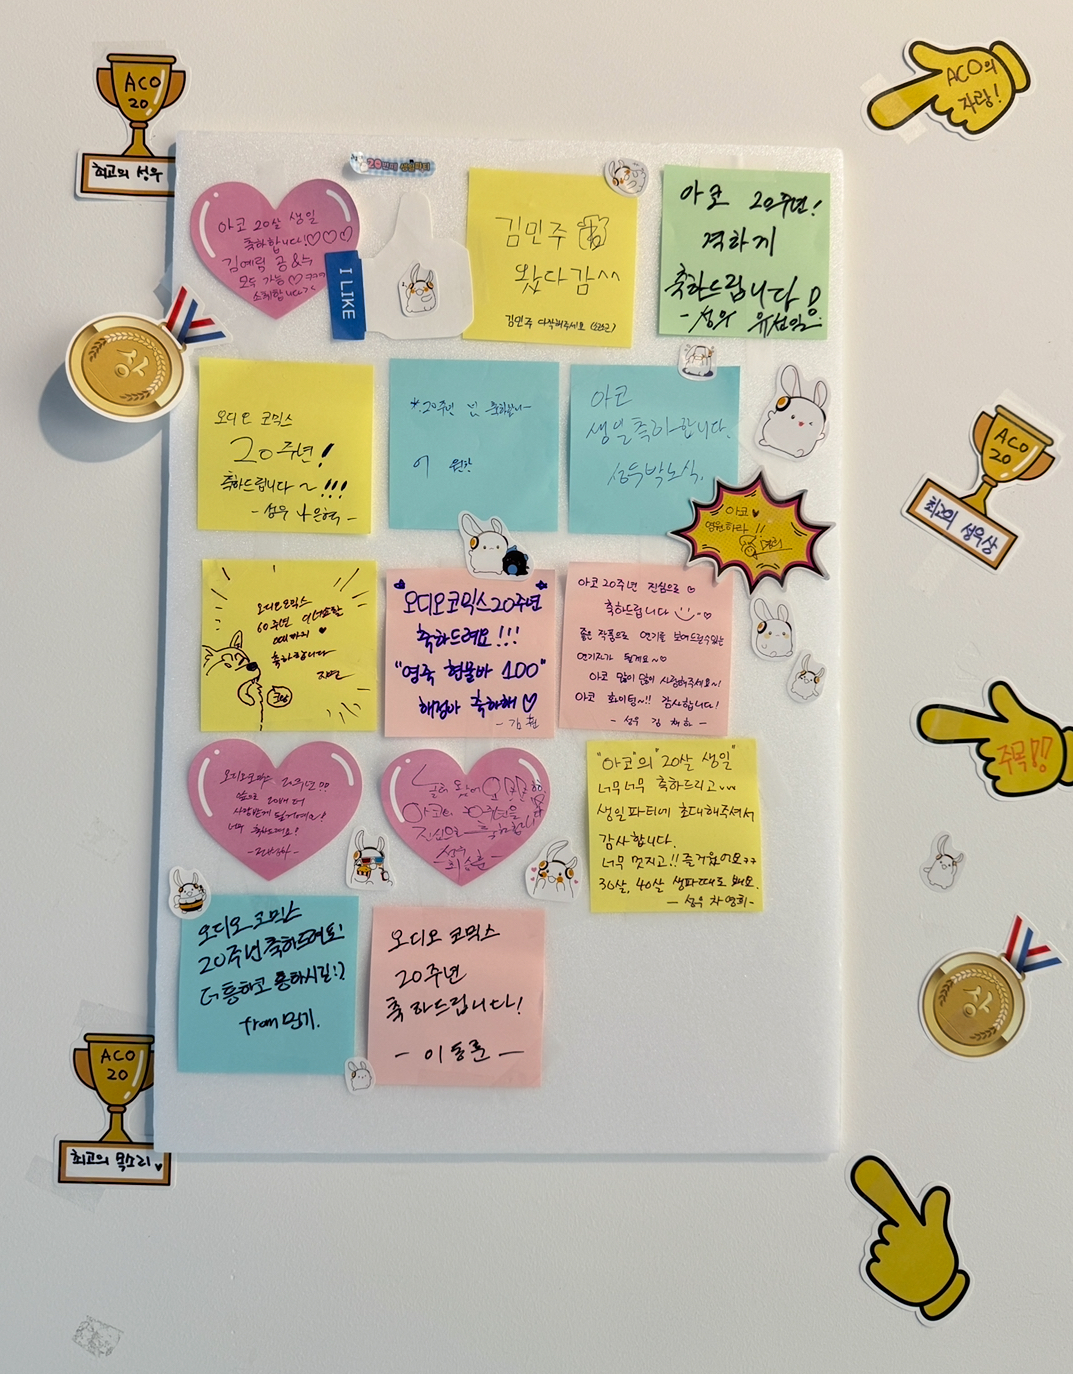 ACO
20
최고의 성우
ACO의
자랑!
20번째 생일파티
아코 20살 생일
축하합니다!♡♡♡
김예림 공&수
모두 가능♡ㅋㅋㅋ
I LIKE
김민주
왔다감^^
김민주 다작해주세요
아코 20주년!
격하게
축하드립니다!
-성우 유선일-
상
오디오 코믹스
20주년!
축하드립니다~!!!
-성우 나은혁-
20주년
아코
생일축하합니다.
성우박노식.
아코♥
영원하라!!
오디오코믹스
60주년
까지 ♥
축하합니다
오디오코믹스20주년
축하드려요!!!
"영죽 현물바 100"
해정아 축하해♡
-김환
아코 20주년 진심으로 ♡
축하드립니다
좋은 작품으로 연기를 보여드릴수있는
연기자가 될게요~♡
아코 많이많이 사랑해주세요~!
아코 화이팅~!! 감사합니다!
- 성우 김채하 -
ACO
20
최고의 성우상
주목!!
20주년!!
앞으로
사랑받게
축하드려요!
놀러 왔어요
아코의 20주년을
진심으로 축하합니다
성우
최승훈
"아코"의 "20살 생일"
너무너무 축하드리고~~
생일파티에 초대해주셔서
감사합니다.
너무 멋지고!! 즐거웠어요ㅋㅋ
30살, 40살 생파때도 봬요.
- 성우 차영희-
오디오 코믹스
20주년축하드려요!
더 흥하고 통하시길!?
from 민기.
오디오 코믹스
20주년
축하드립니다!
- 이동훈 -
상
ACO
20
최고의 목소리♥